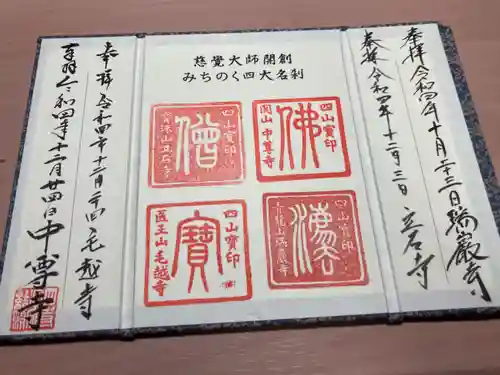 慈覺大師開創
みちのく四大名刹
四山寳印
佛
関山 中尊寺
四山寳印
僧
四山寳印
四山寳印
寳
医王山毛越寺
奉拝 令和四年十月二十三日 瑞巌寺
奉拝 令和四年十二月三日 立石寺
奉拝 令和四年十二月二十四日 毛越寺
奉拝 令和四年十二月廿四日 中尊寺